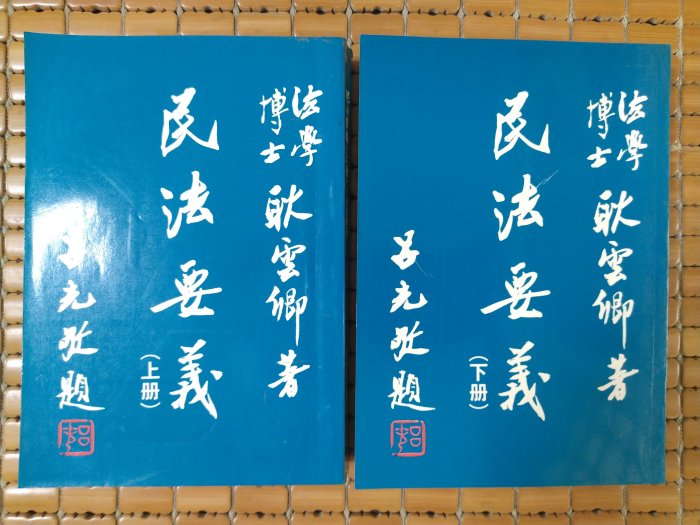 法學
博士
耿雲卿著
民法要義
(上册)
呂光敬題
法學
博士
耿雲卿著
民法要義
(下册)
呂光敬題